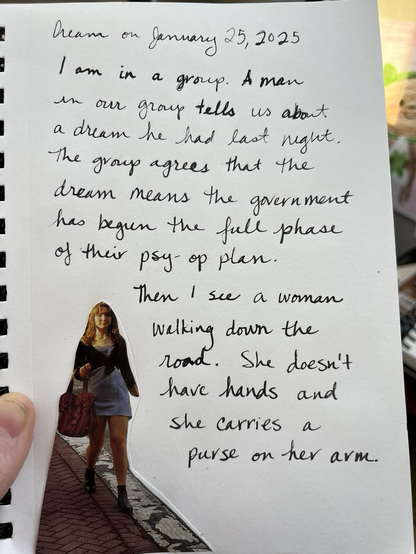 Dream on January 25, 2025
I am in a group. A man
in our group tells us about
a dream he had last night.
The group agrees that the
dream means the government
has begun the full phase
of their psy-op plan.
Then I see a woman
walking down the
road. She doesn't
have hands and
she carries a
purse on her arm.